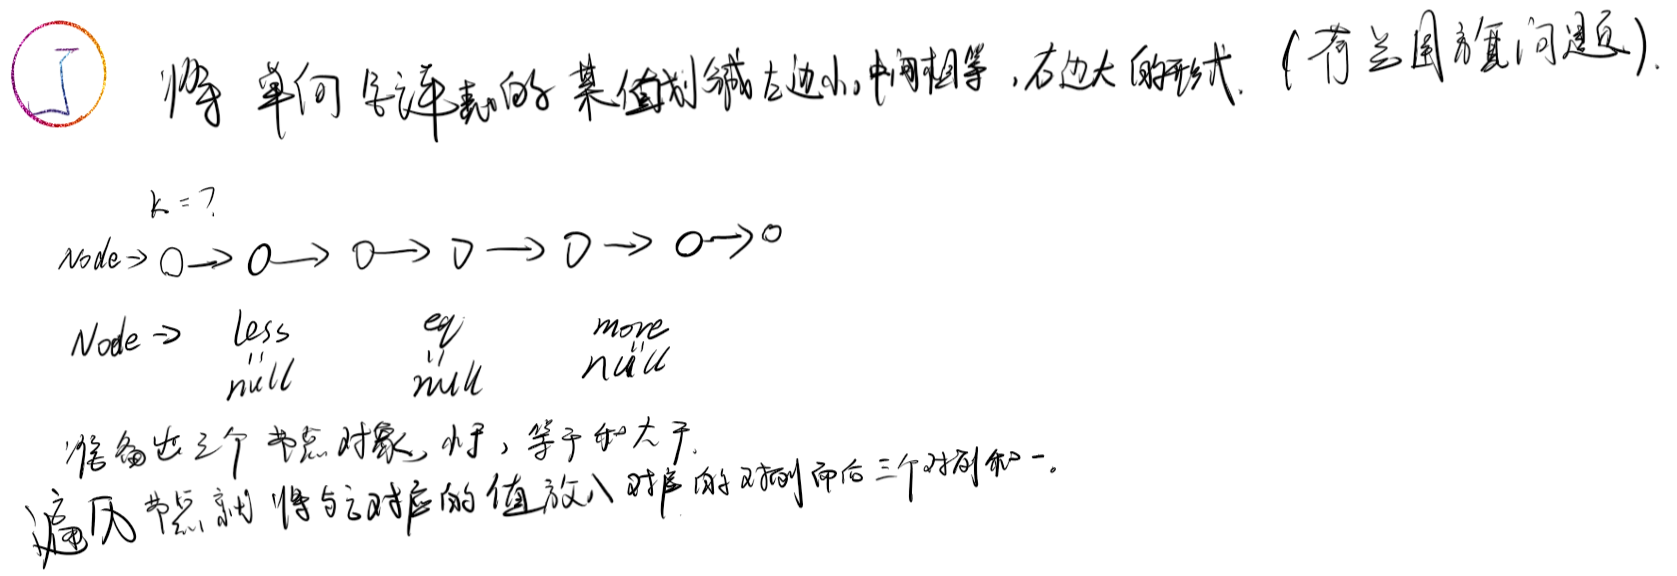 将单向链表的某值划分成左边小,中间相等,右边大的形式.(荷兰国旗问题).
k = ?
Node → O → O → O → O → O → O → O
Node ⇒ less eq more
null null null
准备出三个节点对象,小于,等于和大于.
遍历节点就将与之对应的值放入对应的对列而后三个对列和一.